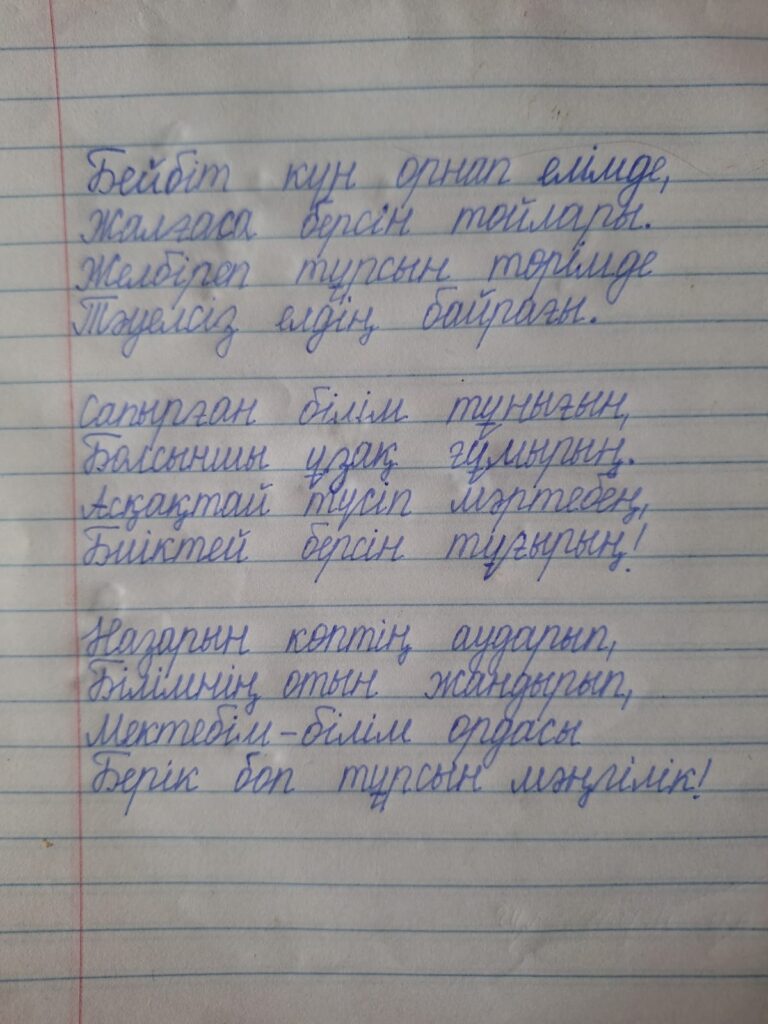 Бейбіт күн орнап елімде,
Жалғаса берсін тойлары.
Желбіреп тұрсын төрімде
Тәуелсіз елдің байрағы.
Сапырған білім тұнығын,
Болсыншы ұзақ ғұмырың.
Асқақтай түсіп мәртебең,
Биіктей берсін тұғырың!
Назарын көптің аударып,
Білімнің отын жандырып,
Мектебім-білім ордасы
Берік боп тұрсын мәңгілік!